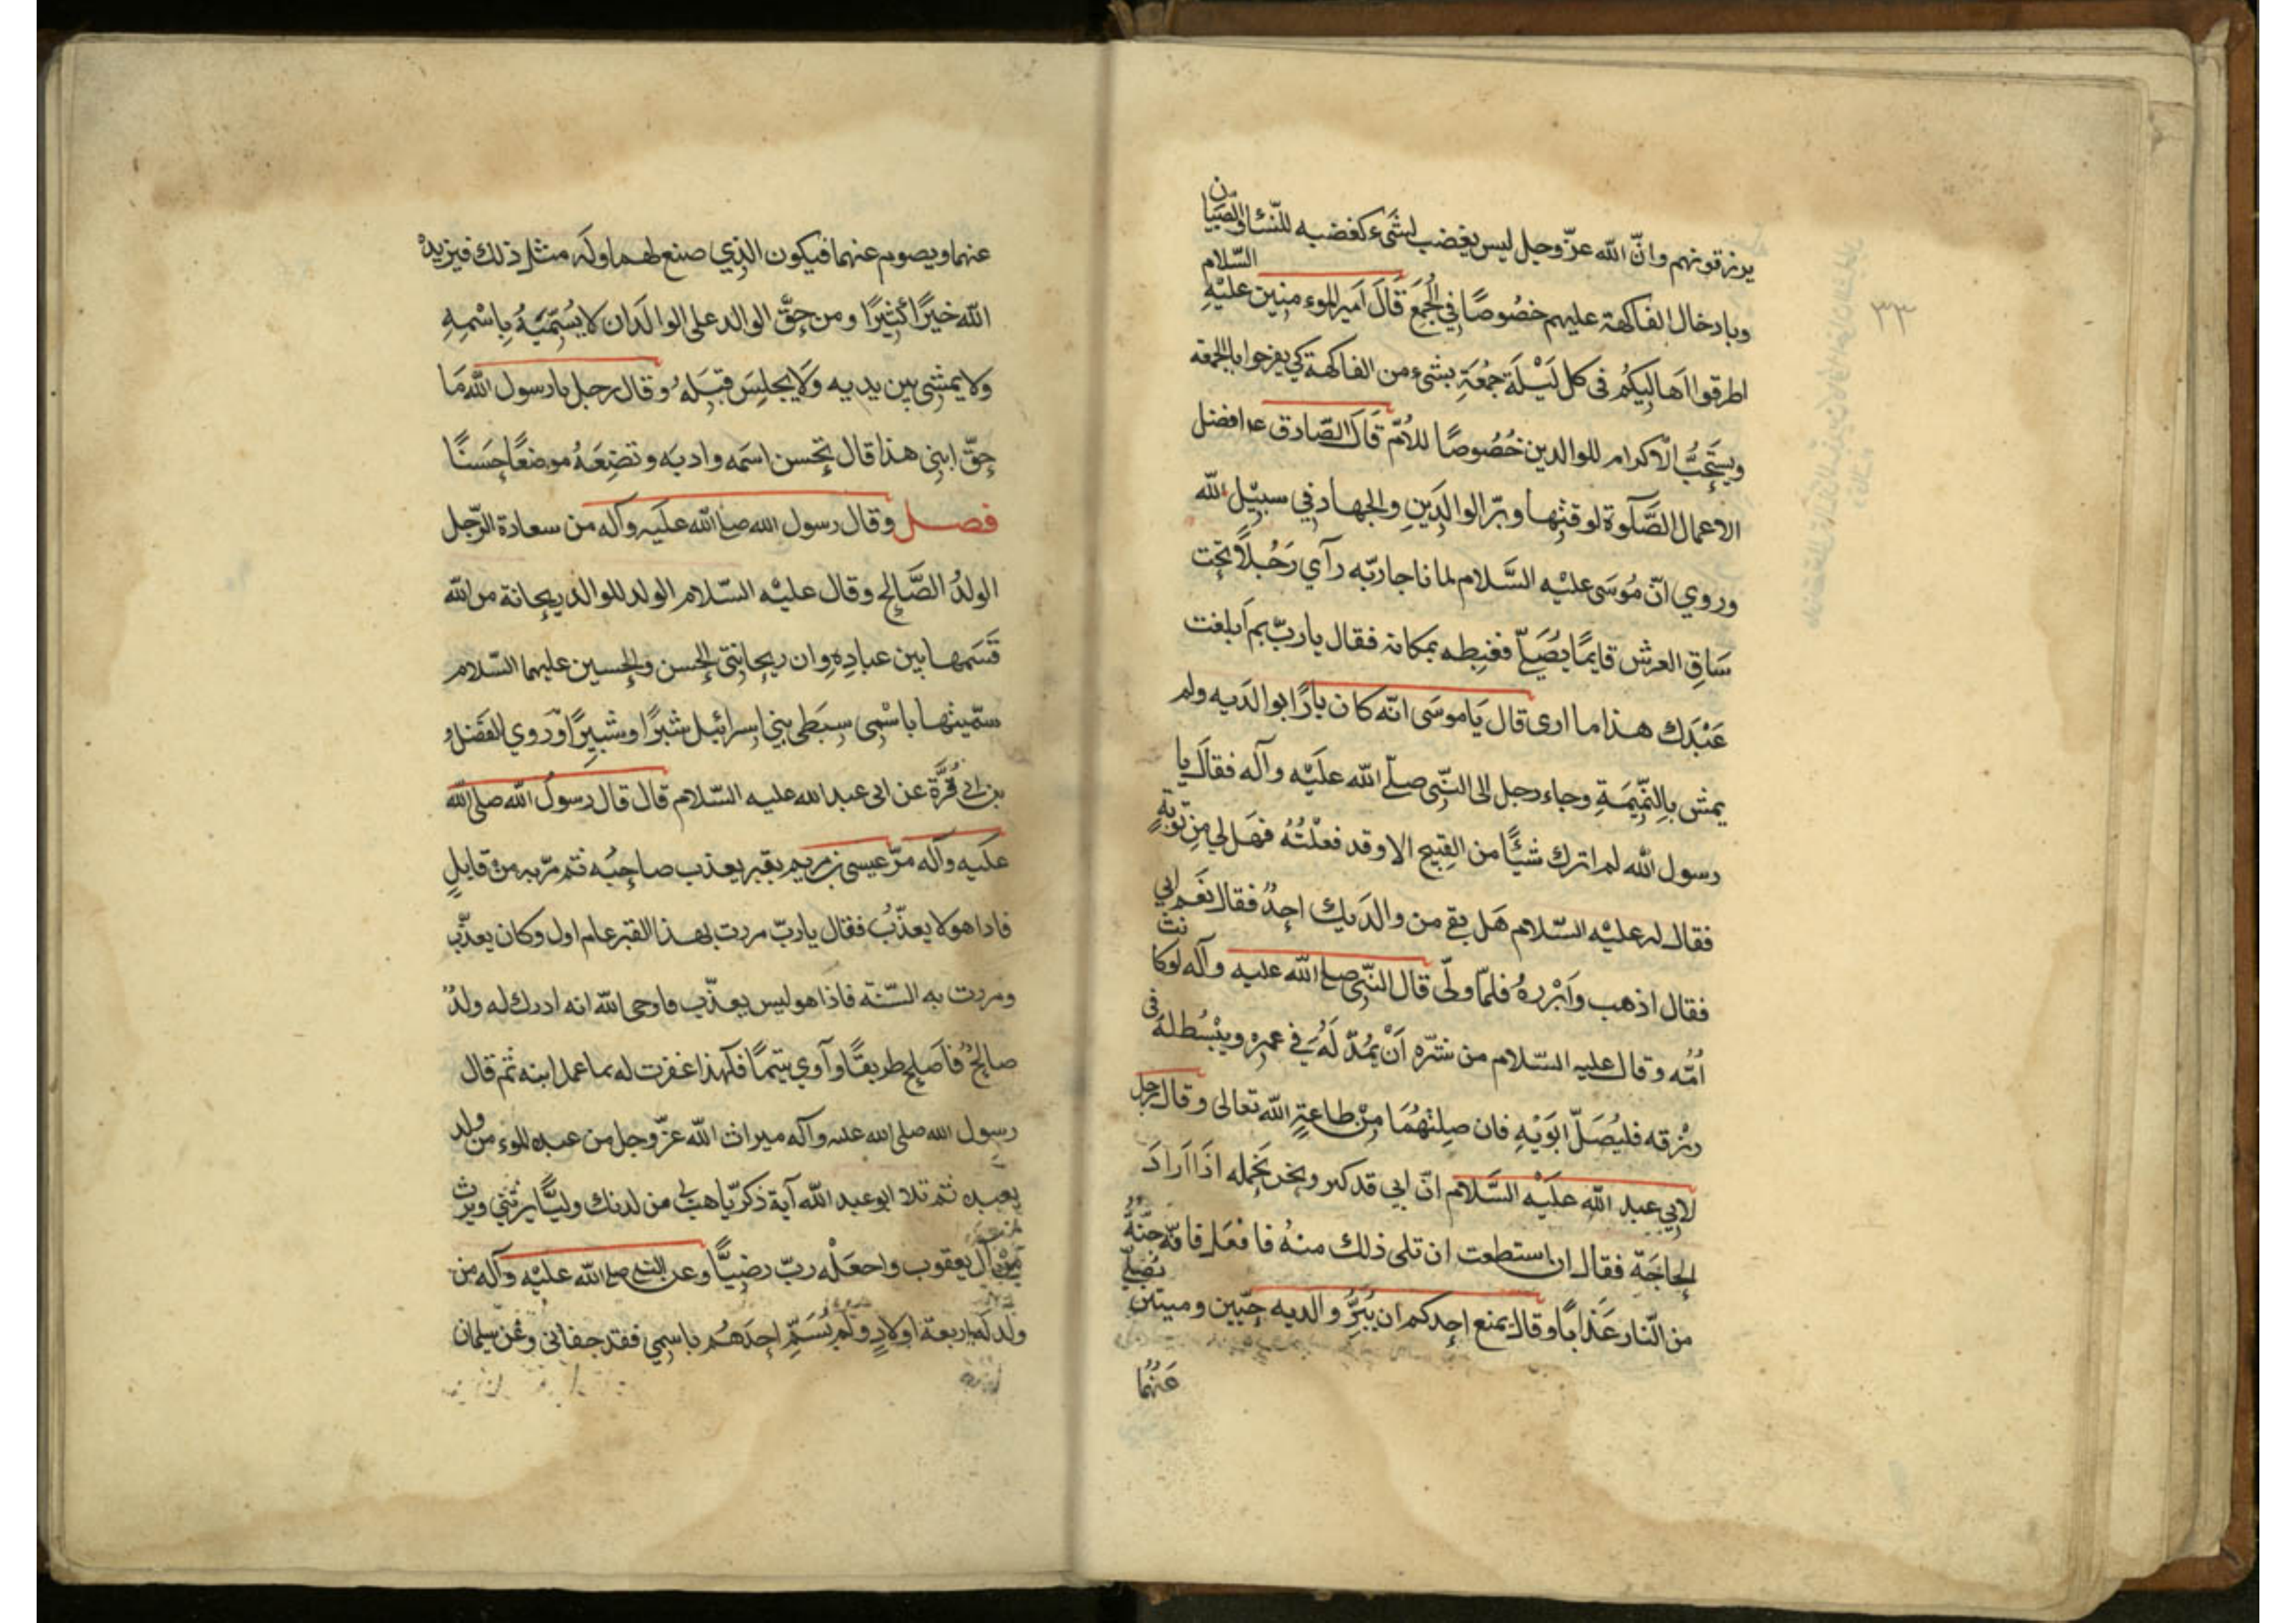 ٣٣
يرزقونهم وانّ الله عزّوجل ليس يغضب لشَىء كغضبه للنّساء والصبيان
وبادخال الفاكهة عليهم خصُوصًا في الجُمَع قَالَ امير الموءمنين عليْهِ السّلام
اطرقوا اهَاليكُم فى كل لَيْلَة جمُعَةٍ بشىء من الفاكهة كي يفرحوا بالجمعة
ويستَحِبُّ الْاكرام للوالدين خُصُوصًا للاُمّ قَالَ الصّادق ع افضل
الاعمال الصَّلٰوة لوقتِها وبرّ الوالدَينِ والجهاد في سبيْل الله
وروي انّ مُوسَى عليْه السَّلام لما ناجا ربّه رآي رَجُلًا تحت
سَاقِ العرش قايمًا يُصَلّي فغبطه بمكانه فقال يا ربّ بم ابلغت
عَبْدَك هذا ما ارى قال يَا موسَى انّه كان بارًا بوالدَيه ولم
يمش بِالنّمِيَمةِ وجاء رجل الى النّبى صلّى الله علَيْه وآله فقالَ يا
رسول الله لم اترك شيًا من القبيح الا وقد فعلْتُهُ فهَل لي مِن توبةٍ
فقال له عليْه السّلام هَل بقي من والدَيك احدٌ فقال نعَم ابي
فقال اذهب وَابْررهُ فلمّا ولّى قال النّبى صلى الله عليه وآله لو كانت
اُمُّه وقال عليه السّلام من سَرّه اَنْ يُمدّ لَهُ في عمره ويبْسُط له فى
رزقه فليُصَلّ ابَوَيْهِ فان صِلتهُمَا مِنْ طاعةٍ الله تعالى وقال رجل
لابي عبد الله علَيْه السَّلام انّ ابي قد كبر ونحن نَحمِله اذَا ارادَ
الحاجَةِ فقال ان استطعت ان تلى ذلك منهُ فافعَل فانّه جنّةٌ
من النّار عَذابًا وقال يمنع احدكم ان يُبَرَّ والديه حيّين وميتين يُصَلّي
عَنهُما
عنهما ويصوم عنهما فيكون الذي صنع لهما وله مثل ذلك فيزيدهُ
الله خيرًا كثيرًا ومن حقّ الوالد على الوالد ان لا يُسَمّيَهُ بِاسْمِهِ
ولا يمشى بين يديه وَلا يجلِسَ قبَلَه وقال رجل يا رسول الله مَا
حقّ ابنِي هذا قال تحسن اسمَه وادبَه وتضَعَهُ موضعًا حَسَنًا
فصل وقال رسول الله صلى الله علَيه وآله من سعادة الرّجل
الولدُ الصَّالح وقال عليْه السّلام الولد للوالد ريحانة من الله
قَسَمها بين عبادِهِ وان ريحانتي الحسن والحسين عليهما السّلام
سمّيتهما باسْمِى سِبَطى بنِي اسرائيل شبرًا وشبِيرًا وَروي الفَضل و
بن ابى قُرَّة عن ابى عبد الله عليه السّلام قال قال رسولُ الله صلى الله
علَيه وآله مرّ عيسى بن مريم بقبر يعذب صاحبُه ثم مرّ به من قابلٍ
فاذا هو لا يعذّبُ فقال يا ربّ مررت بهذا القبر عام اول وكان يعذّب
ومررت به السّنة فاذَا هو ليس يعذّب فاوحى الله انه ادرك له ولدٌ
صالحٌ فاَصلح طريقًا وآوي يتيمًا فلهذا غفرت له بما عمل ابنه ثم قال
رسول الله صلى الله عليه وآله ميراث الله عزّوجل من عبده الموءمن ولد
يعبده ثم تلا ابو عبد الله آية ذكريّا هب لى من لدنك وليًّا يرثني ويرث
مِن آل يعقوب واجعَلْه ربّ رضِيًّا وعن النبى صلى الله عليْه وآله من
ولد له اربعة اولادٍ ولم يُسَمِّ احدَهُم باسمي فقد جفانى وعن سلمان